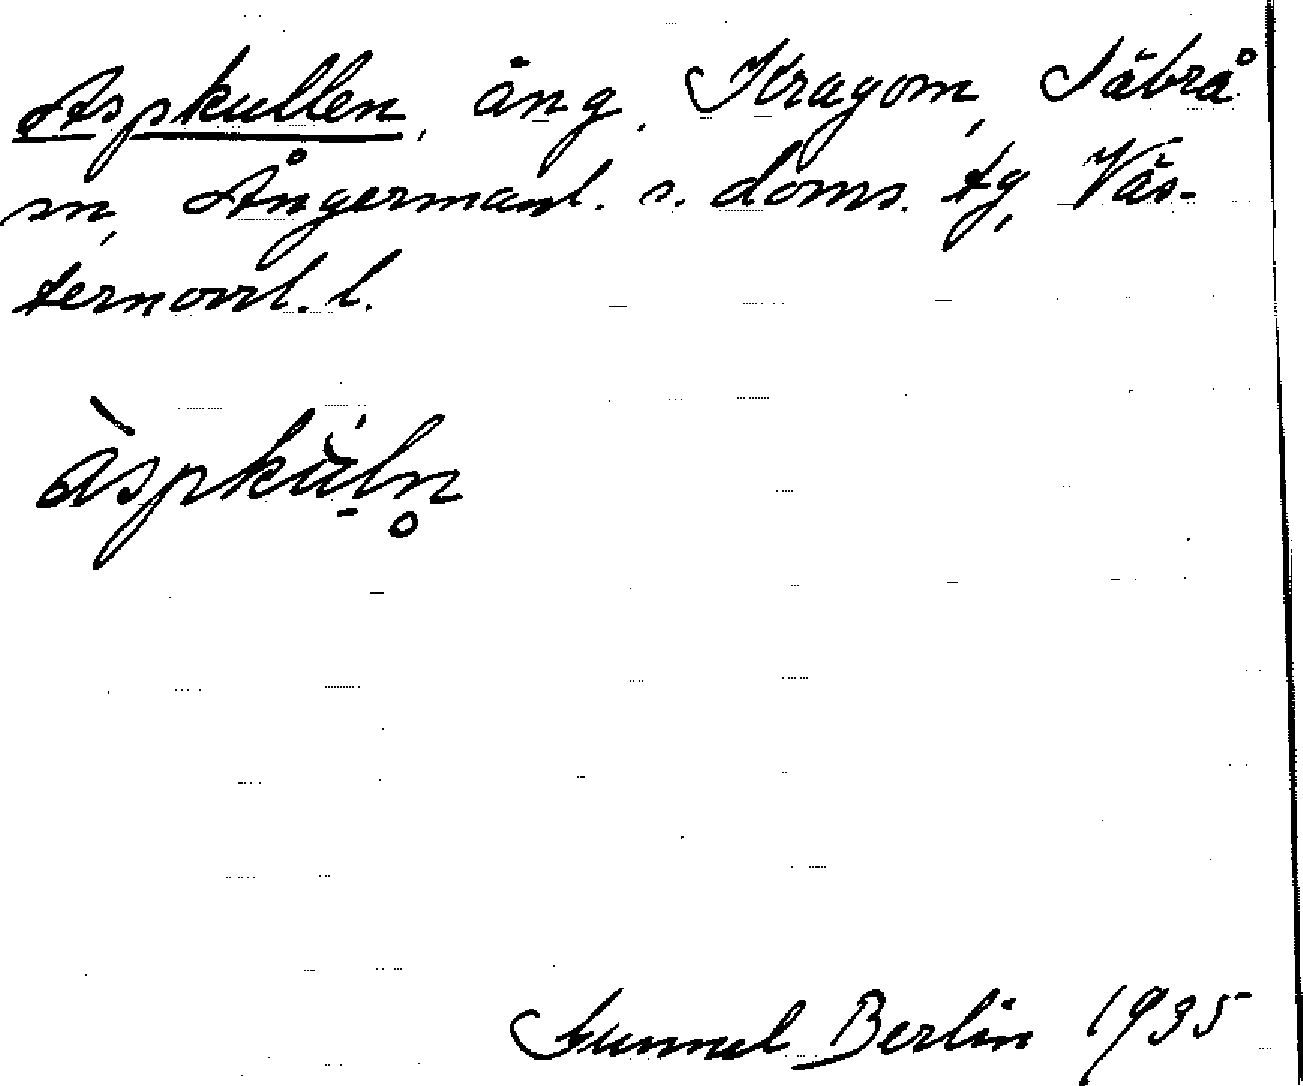 Aspkullen, äng, Kragom, Säbrå
sn, Ångermanl. s. doms. tg, Väs-
ternorrl. l.
àspku̠̇ln̥
Gunnel Berlin 1935